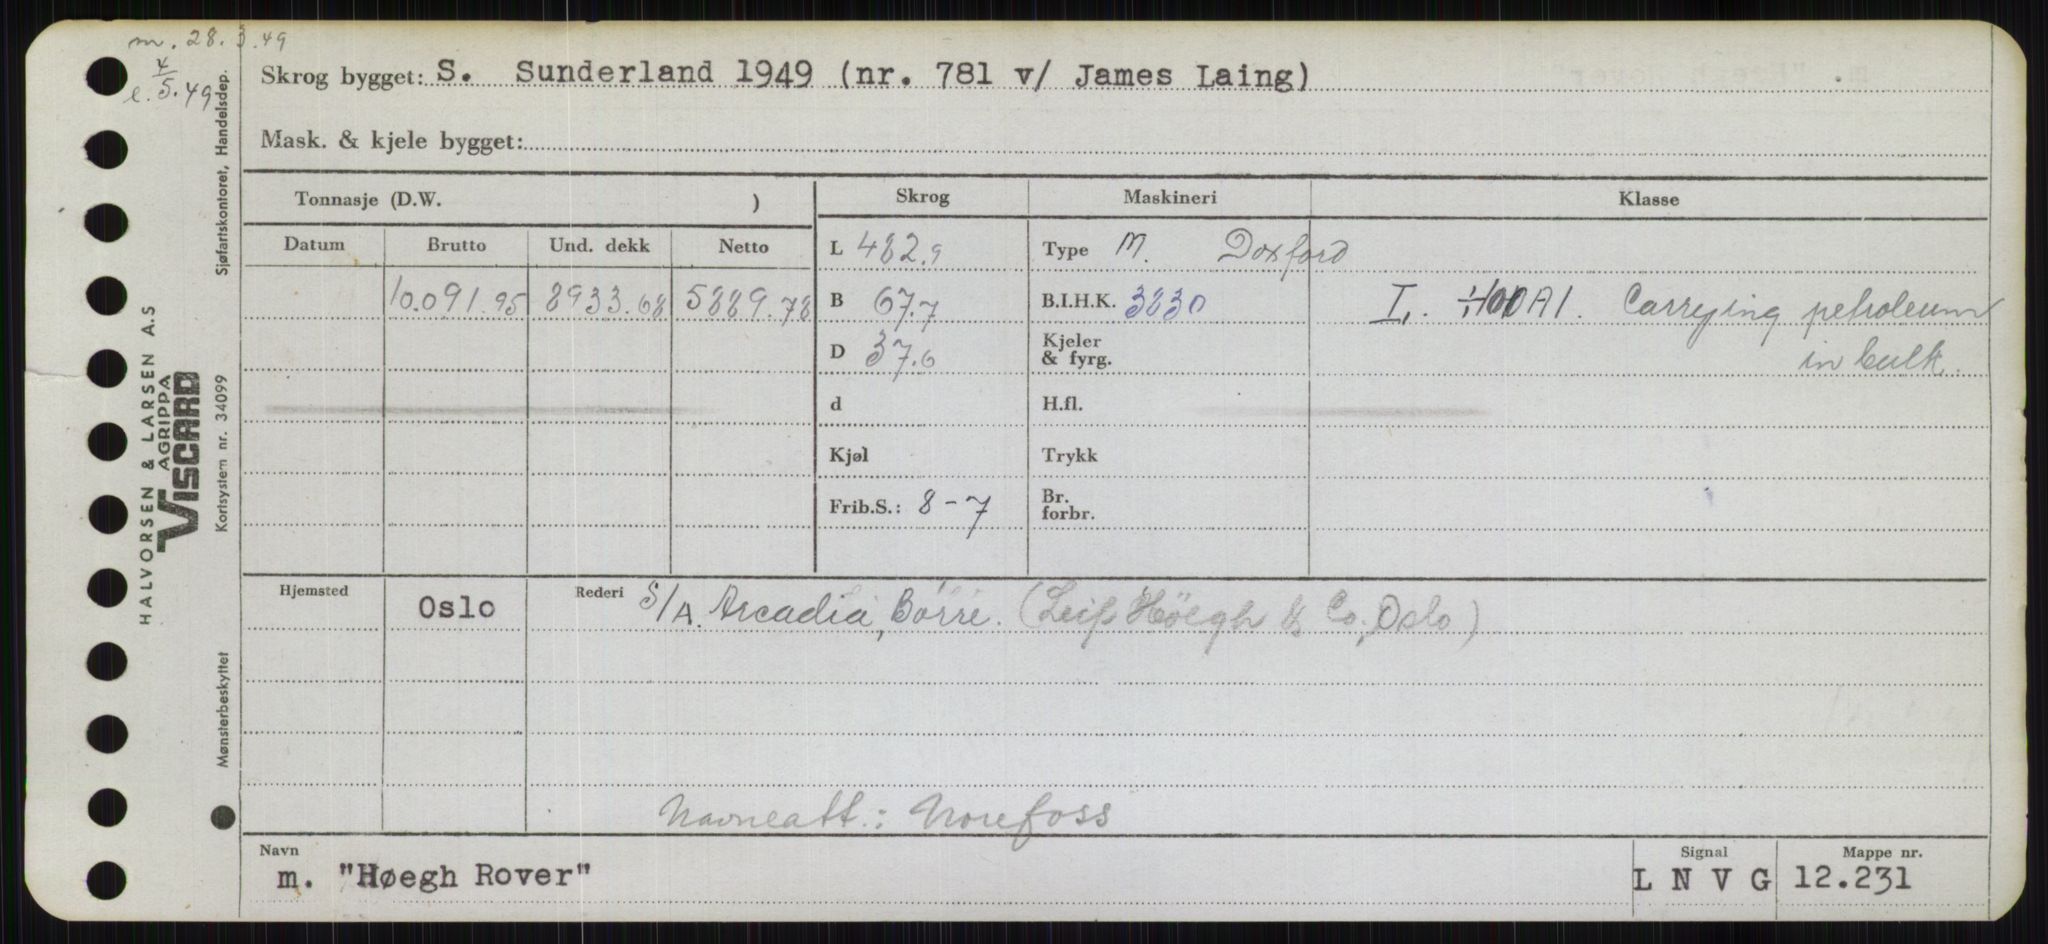 m. 28.3.49
e. 4/5.49
Skrog bygget: S. Sunderland 1949 (nr. 781 v/ James Laing)
Mask. & kjele bygget:
Tonnasje (D.W. )
Skrog
Maskineri
Klasse
Datum
Brutto
Und. dekk
Netto
L 482.9
Type M. Doxford
10.091.95
8933.68
5889.78
B 67.7
B.I.H.K. 3830
I. 100A1. Carrying petroleum
in bulk.
D 37.6
Kjeler
& fyrg.
d
H.fl.
Kjøl
Trykk
Frib.S.: 8-7
Br.
forbr.
Hjemsted
Oslo
Rederi
S/A. Arcadia, Börre. (Leif Höegh & Co, Oslo)
Navneatt.: Norefoss
Navn
m. "Høegh Rover"
Signal
L N V G
Mappe nr.
12.231
Sjøfartskontoret, Handelsdep.
HALVORSEN & LARSEN A.S
AGRIPPA
VISCARD
Kortsystem nr. 34099
Mønsterbeskyttet